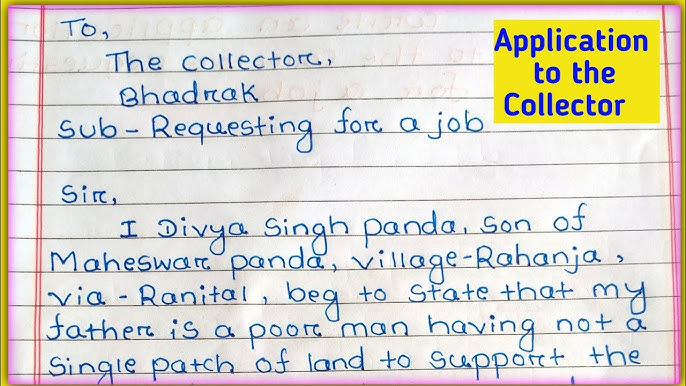 To,
The Collector,
Bhadrak
Sub - Requesting for a job
Sir,
I Divya Singh panda, son of
Maheswar panda, village-Rahanja,
via - Ranital, beg to state that my
father is a poor man having not a
single patch of land to support the
Application
to the
Collector